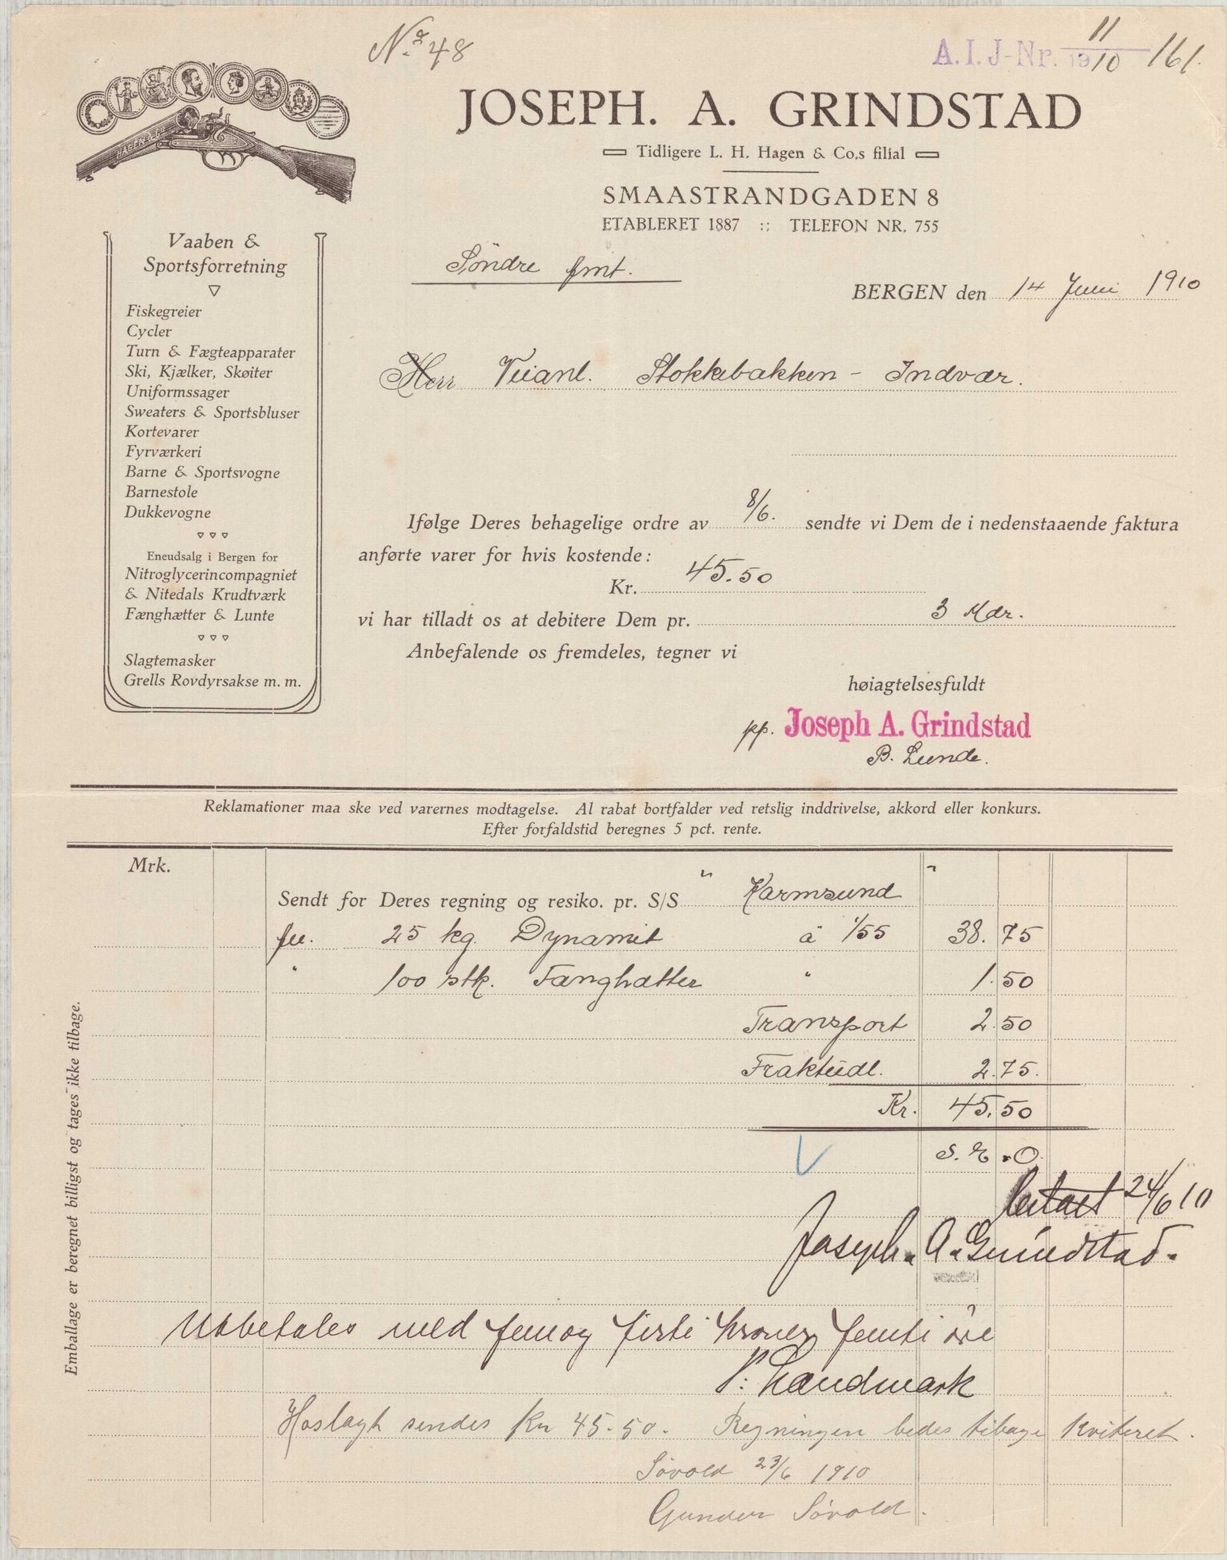 No 48
A.I.J-Nr. 11/1910 161.
JOSEPH. A. GRINDSTAD
Tidligere L. H. Hagen & Co,s filial
SMAASTRANDGADEN 8
ETABLERET 1887 :: TELEFON NR. 755
Vaaben &
Sportsforretning
Fiskegreier
Cycler
Turn & Fægteapparater
Ski, Kjælker, Skøiter
Uniformssager
Sweaters & Sportsbluser
Kortevarer
Fyrværkeri
Barne & Sportsvogne
Barnestole
Dukkevogne
Eneudsalg i Bergen for
Nitroglycerincompagniet
& Nitedals Krudtværk
Fænghætter & Lunte
Slagtemasker
Grells Rovdyrsakse m. m.
Søndre Amt.
BERGEN den 14 Juni 1910
Herr Veianl. Stokkebakken - Indvær.
Ifølge Deres behagelige ordre av 8/6. sendte vi Dem de i nedenstaaende faktura
anførte varer for hvis kostende:
Kr. 45.50
vi har tilladt os at debitere Dem pr. 3 Mdr.
Anbefalende os fremdeles, tegner vi
høiagtelsesfuldt
pp. Joseph A. Grindstad
B. Lunde.
Reklamationer maa ske ved varernes modtagelse. Al rabat bortfalder ved retslig inddrivelse, akkord eller konkurs.
Efter forfaldstid beregnes 5 pct. rente.
Mrk.
Sendt for Deres regning og resiko. pr. S/S " Karmsund "
25 kg. Dynamit à 1/55 38.75
" 100 stk. Fænghætter " 1.50
Transport 2.50
Fraktudl. 2.75.
Kr. 45.50
S. E. O.
betalt 24/6 10
Joseph. A. Grindstad.
Emballage er beregnet billigst og tages ikke tilbage.
Utbetales med femog firti kroner femti øre
Landmark
Hoslagt sendes Kr 45.50. Regningen bedes tilbage kvitteret.
Søvold 23/6 1910
Gunder Søvold.